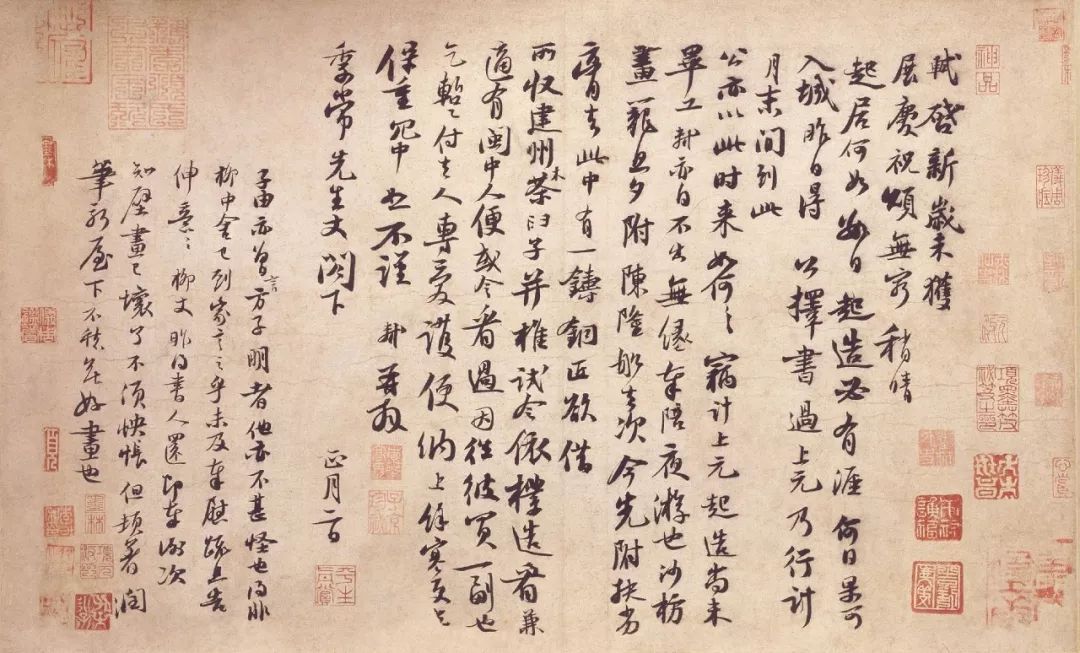 軾啓新歲未獲
展慶祝頌無窮稍晴
起居何如數日起造必有涯何日果可
入城昨日得公擇書過上元乃行計
月末間到此
公亦以此時來如何〻竊計上元起造尚未
畢工軾亦自不出無緣奉陪夜游也沙枋
畫籠旦夕附陳隆船去次今先附扶劣
膏去此中有一鑄銅匠欲借
所收建州木茶臼子并椎試令依樣造看兼
適有閩中人便或令看過因往彼買一副也
乞暫付去人專愛護便納上餘寒更乞
保重冗中恕不謹 軾再拜
季常先生丈閤下 正月二日
子由亦曾言方子明者他亦不甚怪也得非
柳中舍已到家言之乎未及奉慰疏且告
伸意〻柳丈昨得書人還即奉謝次
知壁畫已壞了不須怏悵但頓著潤
筆新屋下不愁無好畫也
神品